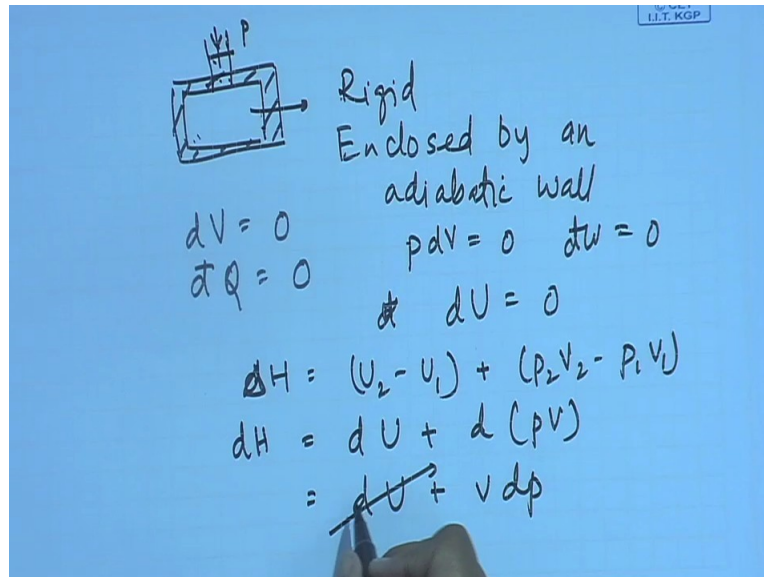 I.I.T. KGP
P
Rigid
Enclosed by an
adiabatic wall
dV = 0
pdV = 0 đW = 0
đQ = 0
dU = 0
ΔH = (U₂ - U₁) + (P₂V₂ - P₁V₁)
dH = dU + d(PV)
= dU + vdp